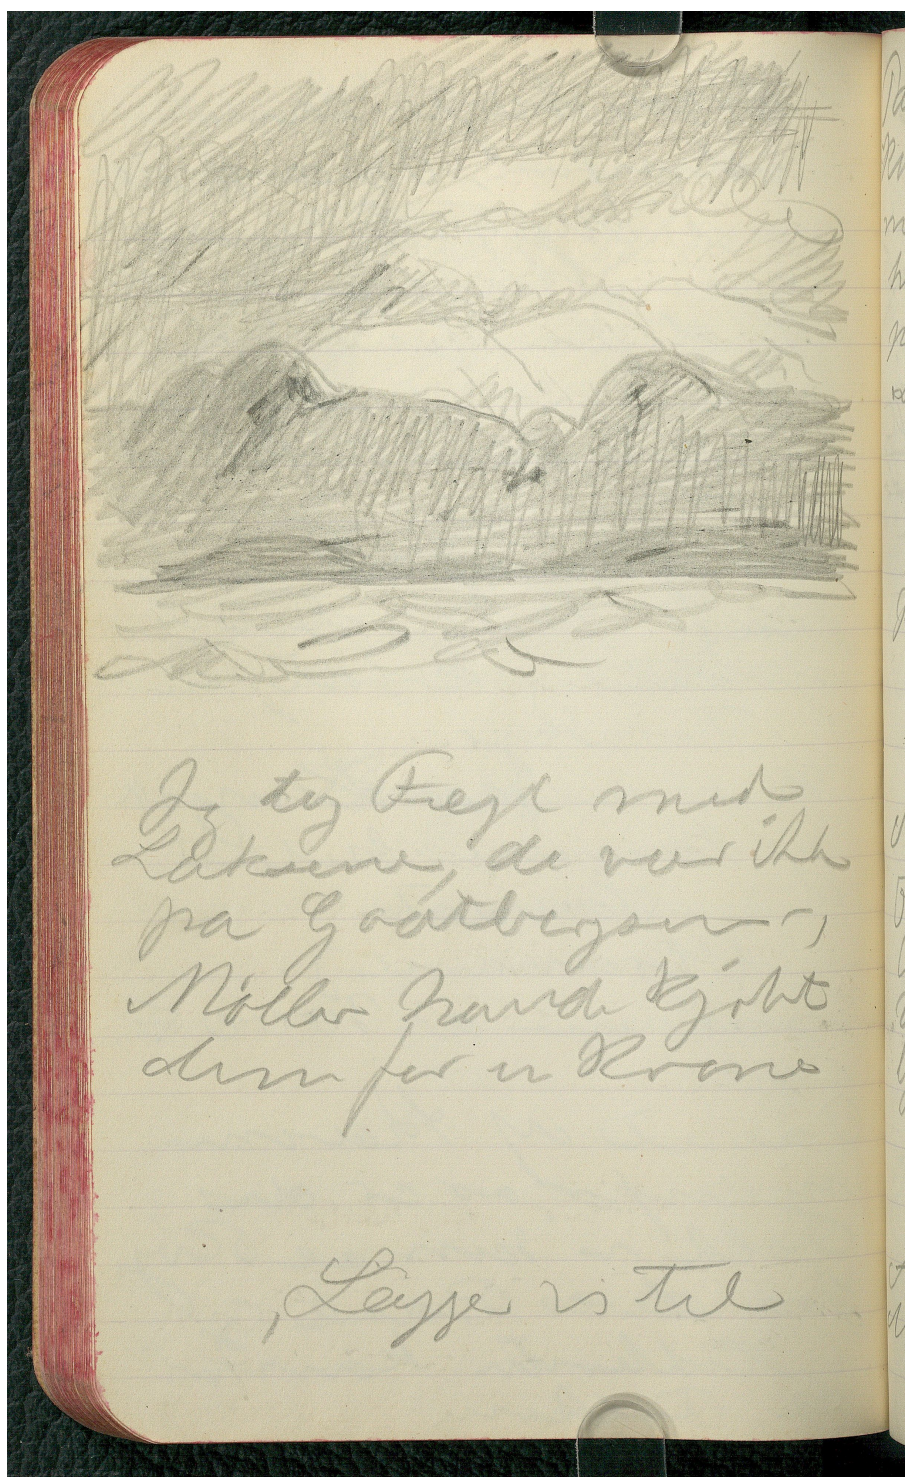 Jeg tog Fegl med
Laksene, de var ikke
på Godtbergsen -,
Møller havde kjøbt
dem for en Krone
"Lægger is til